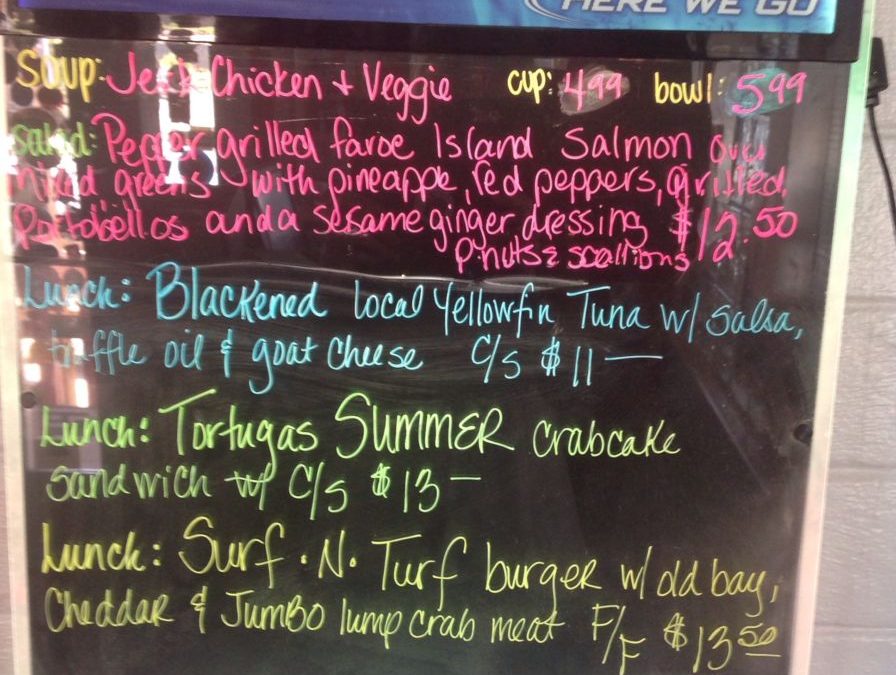 HERE WE GO
Soup: Jerk Chicken + Veggie cup: 4.99 bowl: 5.99
Salad: Pepper grilled faroe Island Salmon over
mixed greens with pineapple, red peppers, grilled
Portobellos and a sesame ginger dressing $12.50
P.nuts & scallions
Lunch: Blackened local Yellowfin Tuna w/ salsa,
truffle oil & goat cheese C/S $11—
Lunch: Tortugas SUMMER crabcake
sandwich w/ C/S $13—
Lunch: Surf.N.Turf burger w/ old bay,
Cheddar & Jumbo lump crab meat F/F $13.50